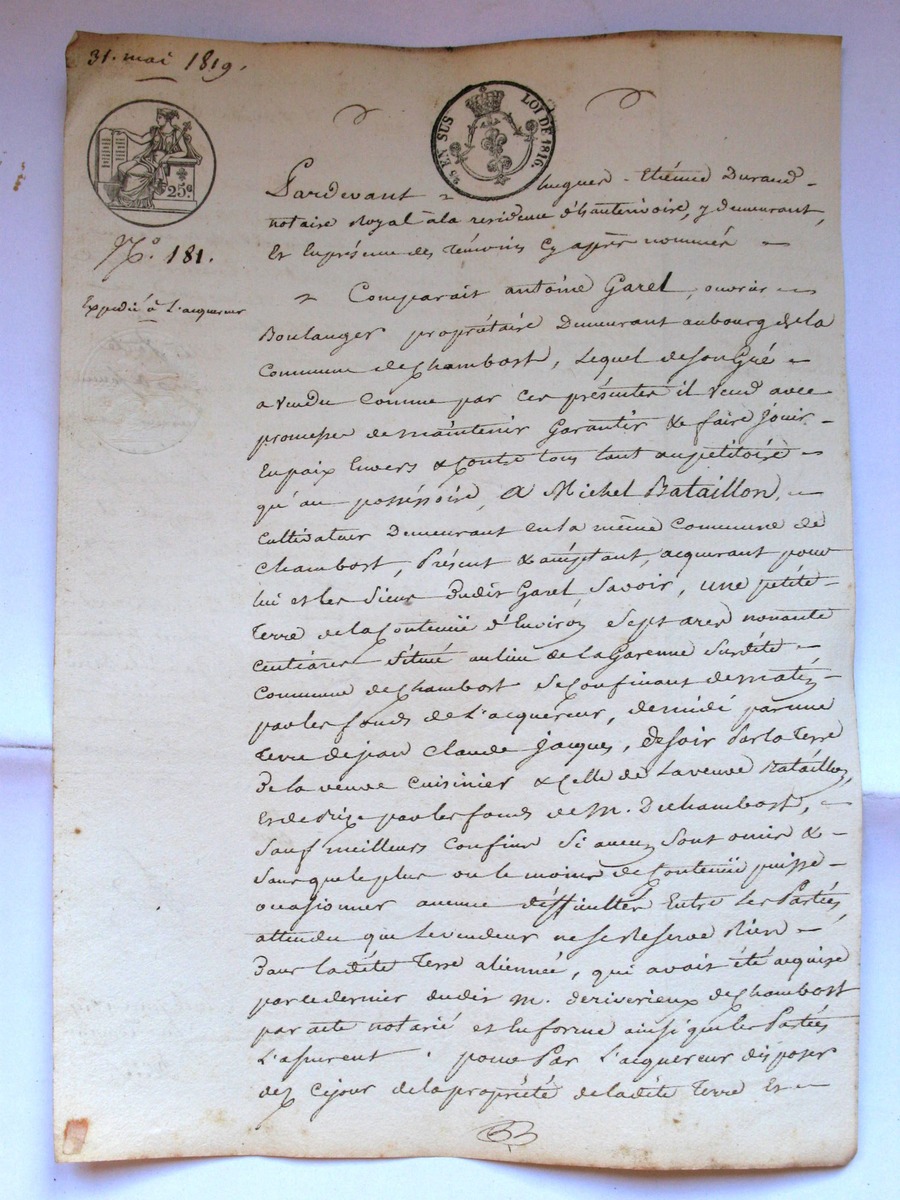 31. mai 1819.
25 EN SUS LOI DE 1816.
25c
N.º 181.
Expedié à L'acquereur
Pardevant hugues-Etiénne Durand
notaire Royal à la residence d'hauterivoire, y demeurant,
Et En présence des témoins Cy après nommés
Comparait antoine Garel, ouvrier
Boulanger propriétaire Demeurant au bourg de la
Commune de Chambost, Lequel de son Gré
a vendu comme par Ces présentes il vend avec
promesse de maintenir Garantir & faire jouir
En paix Envers & Contre tous tant au petitoire
qu'au possessoire, a Michel Bataillon,
cultivateur Demeurant en la même commune de
Chambost, Présent & acceptant, acquerant pour
lui et les Siens dudit Garel, Savoir, une petite
terre de la Contenue d'Environ Sept ares nonante
centiares Située au lieu de la Garenne Susdite
commune de Chambost Se Confinant de matin
par les fonds de L'acquereur, de midi par une
terre de jean Claude jacques, de soir Par la terre
de la veuve Cuisinier & Celle de La veuve Bataillon,
Et de bize par les fonds de M. De chambost,
Sauf meilleurs Confins Si aucuns Sont omis &
Sans que le plus ou le moins de Contenue puisse
occasionner aucune difficultés Entre Les Parties
attendu que Le vendeur ne se Reserve Rien
Dans ladite Terre aliennée, qui avait été acquise
par ce dernier dudit M. de riverieux de Chambost
par acte notarié et En forme ainsi que les Parties
L'assurent. pour Par L'acquereur disposer
dez Ce jour de la propriété de ladite Terre Et